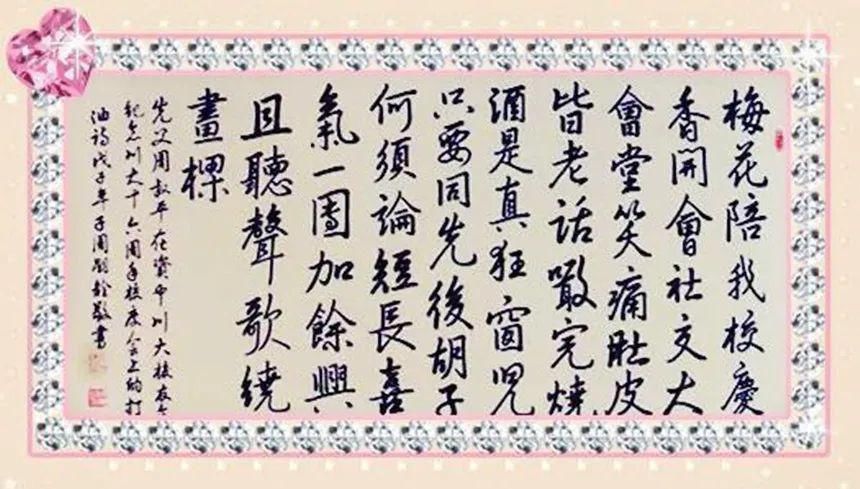 梅花陪我校慶
香開會社交大
會堂笑痛肚皮
皆老話噉完燒
酒是真狂窗兒
只要同先後胡子
何須論短長喜
氣一團加餘興
且聽聲歌繞
畫樑
先父周叔平在資中川大校友會
紀念川大十六周年校慶會上的打
油詩戊子年子周敬書